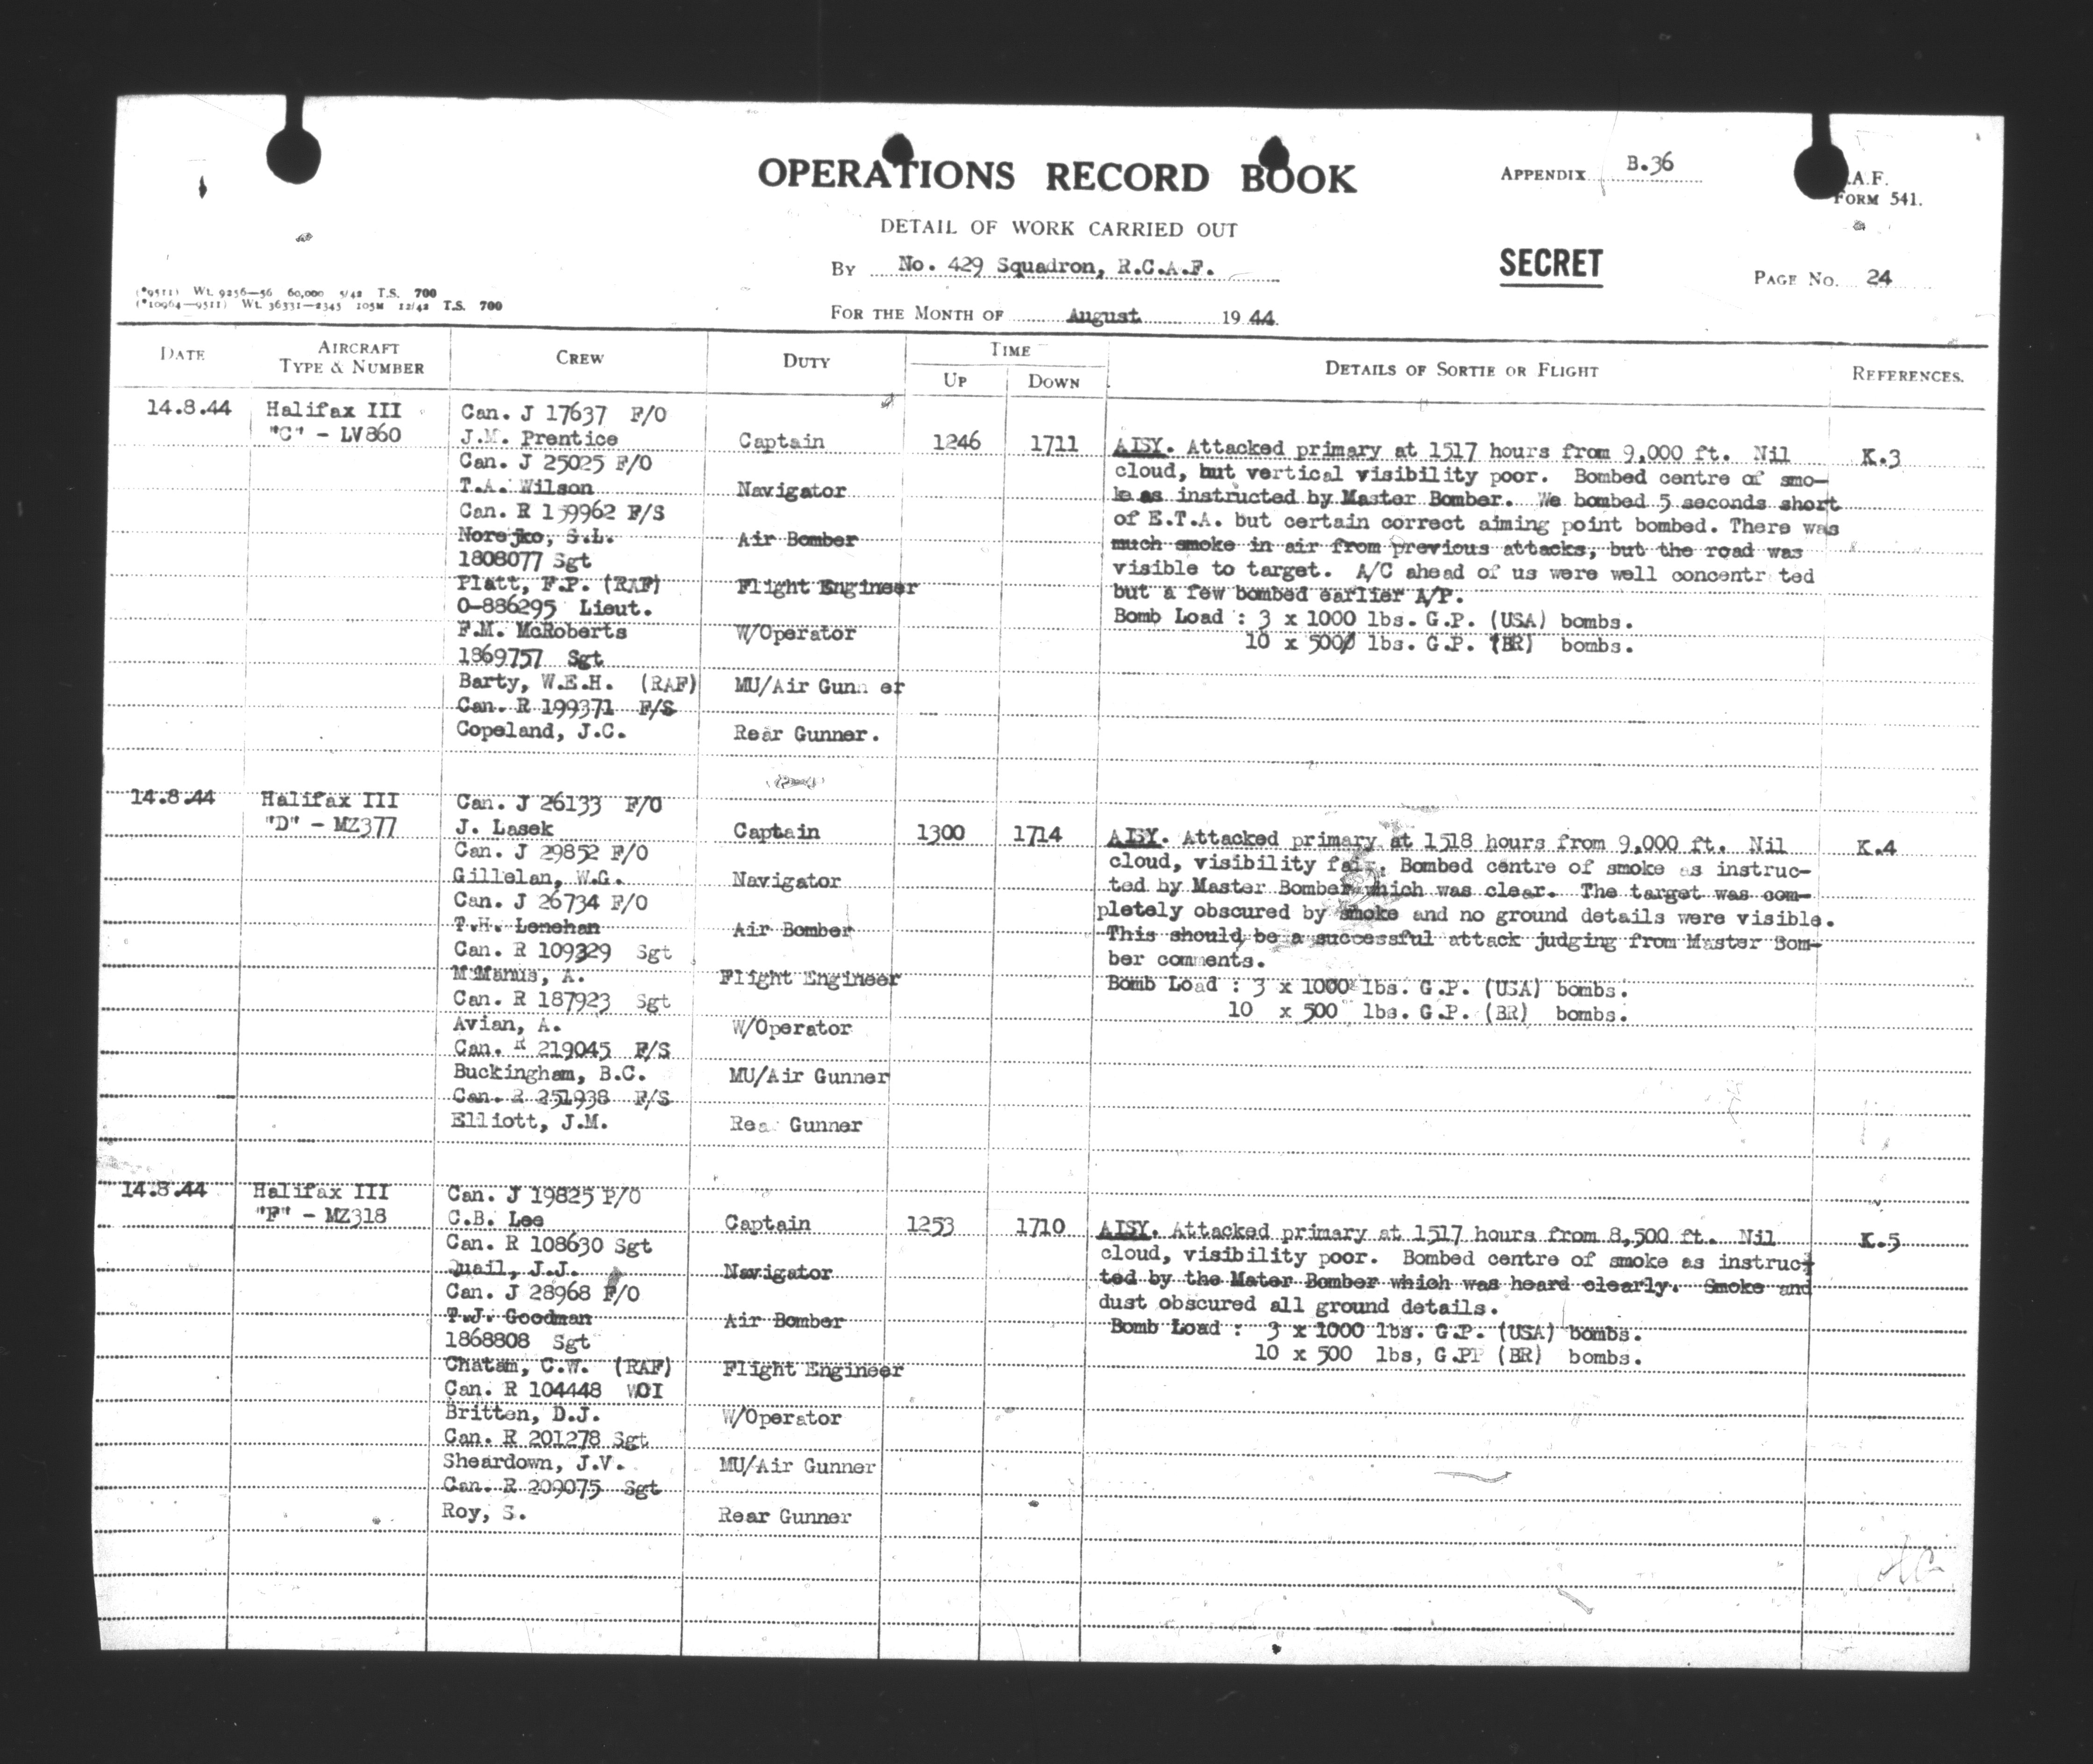 OPERATIONS RECORD BOOK
APPENDIX B.36
.A.F.
FORM 541.
DETAIL OF WORK CARRIED OUT
By No. 429 Squadron, R.C.A.F.
SECRET
PAGE No. 24
(*9511) Wt. 9256—56 60,000 5/42 T.S. 700
(*10964—9511) Wt. 36331—2345 105M 12/42 T.S. 700
FOR THE MONTH OF August 1944.
DATE
AIRCRAFT TYPE & NUMBER
CREW
DUTY
TIME
UP
DOWN
DETAILS OF SORTIE OR FLIGHT
REFERENCES.
14.8.44 Halifax III Can. J 17637 F/O
"C" - LV860 J.M. Prentice Captain 1246 1711 AISY. Attacked primary at 1517 hours from 9,000 ft. Nil K.3
Can. J 25025 F/O cloud, but vertical visibility poor. Bombed centre of smo-
T.A. Wilson Navigator ke as instructed by Master Bomber. We bombed 5 seconds short
Can. R 159962 F/S of E.T.A. but certain correct aiming point bombed. There was
Norejko, S.L. Air Bomber much smoke in air from previous attacks, but the road was
1808077 Sgt visible to target. A/C ahead of us were well concentr ted
Platt, F.P. (RAF) Flight Engineer but a few bombed earlier A/P.
O-886295 Lieut. Bomb Load : 3 x 1000 lbs. G.P. (USA) bombs.
F.M. McRoberts W/Operator 10 x 500 lbs. G.P. (BR) bombs.
1869757 Sgt
Barty, W.E.H. (RAF) MU/Air Gunn er
Can. R 199371 F/S
Copeland, J.C. Rear Gunner.
14.8.44 Halifax III Can. J 26133 F/O
"D" - MZ377 J. Lasek Captain 1300 1714 AISY. Attacked primary at 1518 hours from 9,000 ft. Nil K.4
Can. J 29852 F/O cloud, visibility fair. Bombed centre of smoke as instruc-
Gillelan, W.G. Navigator ted by Master Bomber which was clear. The target was com-
Can. J 26734 F/O pletely obscured by smoke and no ground details were visible.
T.H. Lenehan Air Bomber This should be a successful attack judging from Master Bom-
Can. R 109329 Sgt ber comments.
McManus, A. Flight Engineer Bomb Load : 3 x 1000 lbs. G.P. (USA) bombs.
Can. R 187923 Sgt 10 x 500 lbs. G.P. (BR) bombs.
Avian, A. W/Operator
Can. R 219045 F/S
Buckingham, B.C. MU/Air Gunner
Can. R 251938 F/S
Elliott, J.M. Rea Gunner
14.8.44 Halifax III Can. J 19825 P/O
"F" - MZ318 C.B. Lee Captain 1253 1710 AISY. Attacked primary at 1517 hours from 8,500 ft. Nil K.5
Can. R 108630 Sgt cloud, visibility poor. Bombed centre of smoke as instruc-
Quail, J.J. Navigator ted by the Mater Bomber which was heard clearly. Smoke and
Can. J 28968 F/O dust obscured all ground details.
T.J. Goodman Air Bomber Bomb Load : 3 x 1000 lbs. G.P. (USA) bombs.
1868808 Sgt 10 x 500 lbs, G.PP (BR) bombs.
Chatam, C.W. (RAF) Flight Engineer
Can. R 104448 WOI
Britten, D.J. W/Operator
Can. R 201278 Sgt
Sheardown, J.V. MU/Air Gunner
Can. R 209075 Sgt
Roy, S. Rear Gunner